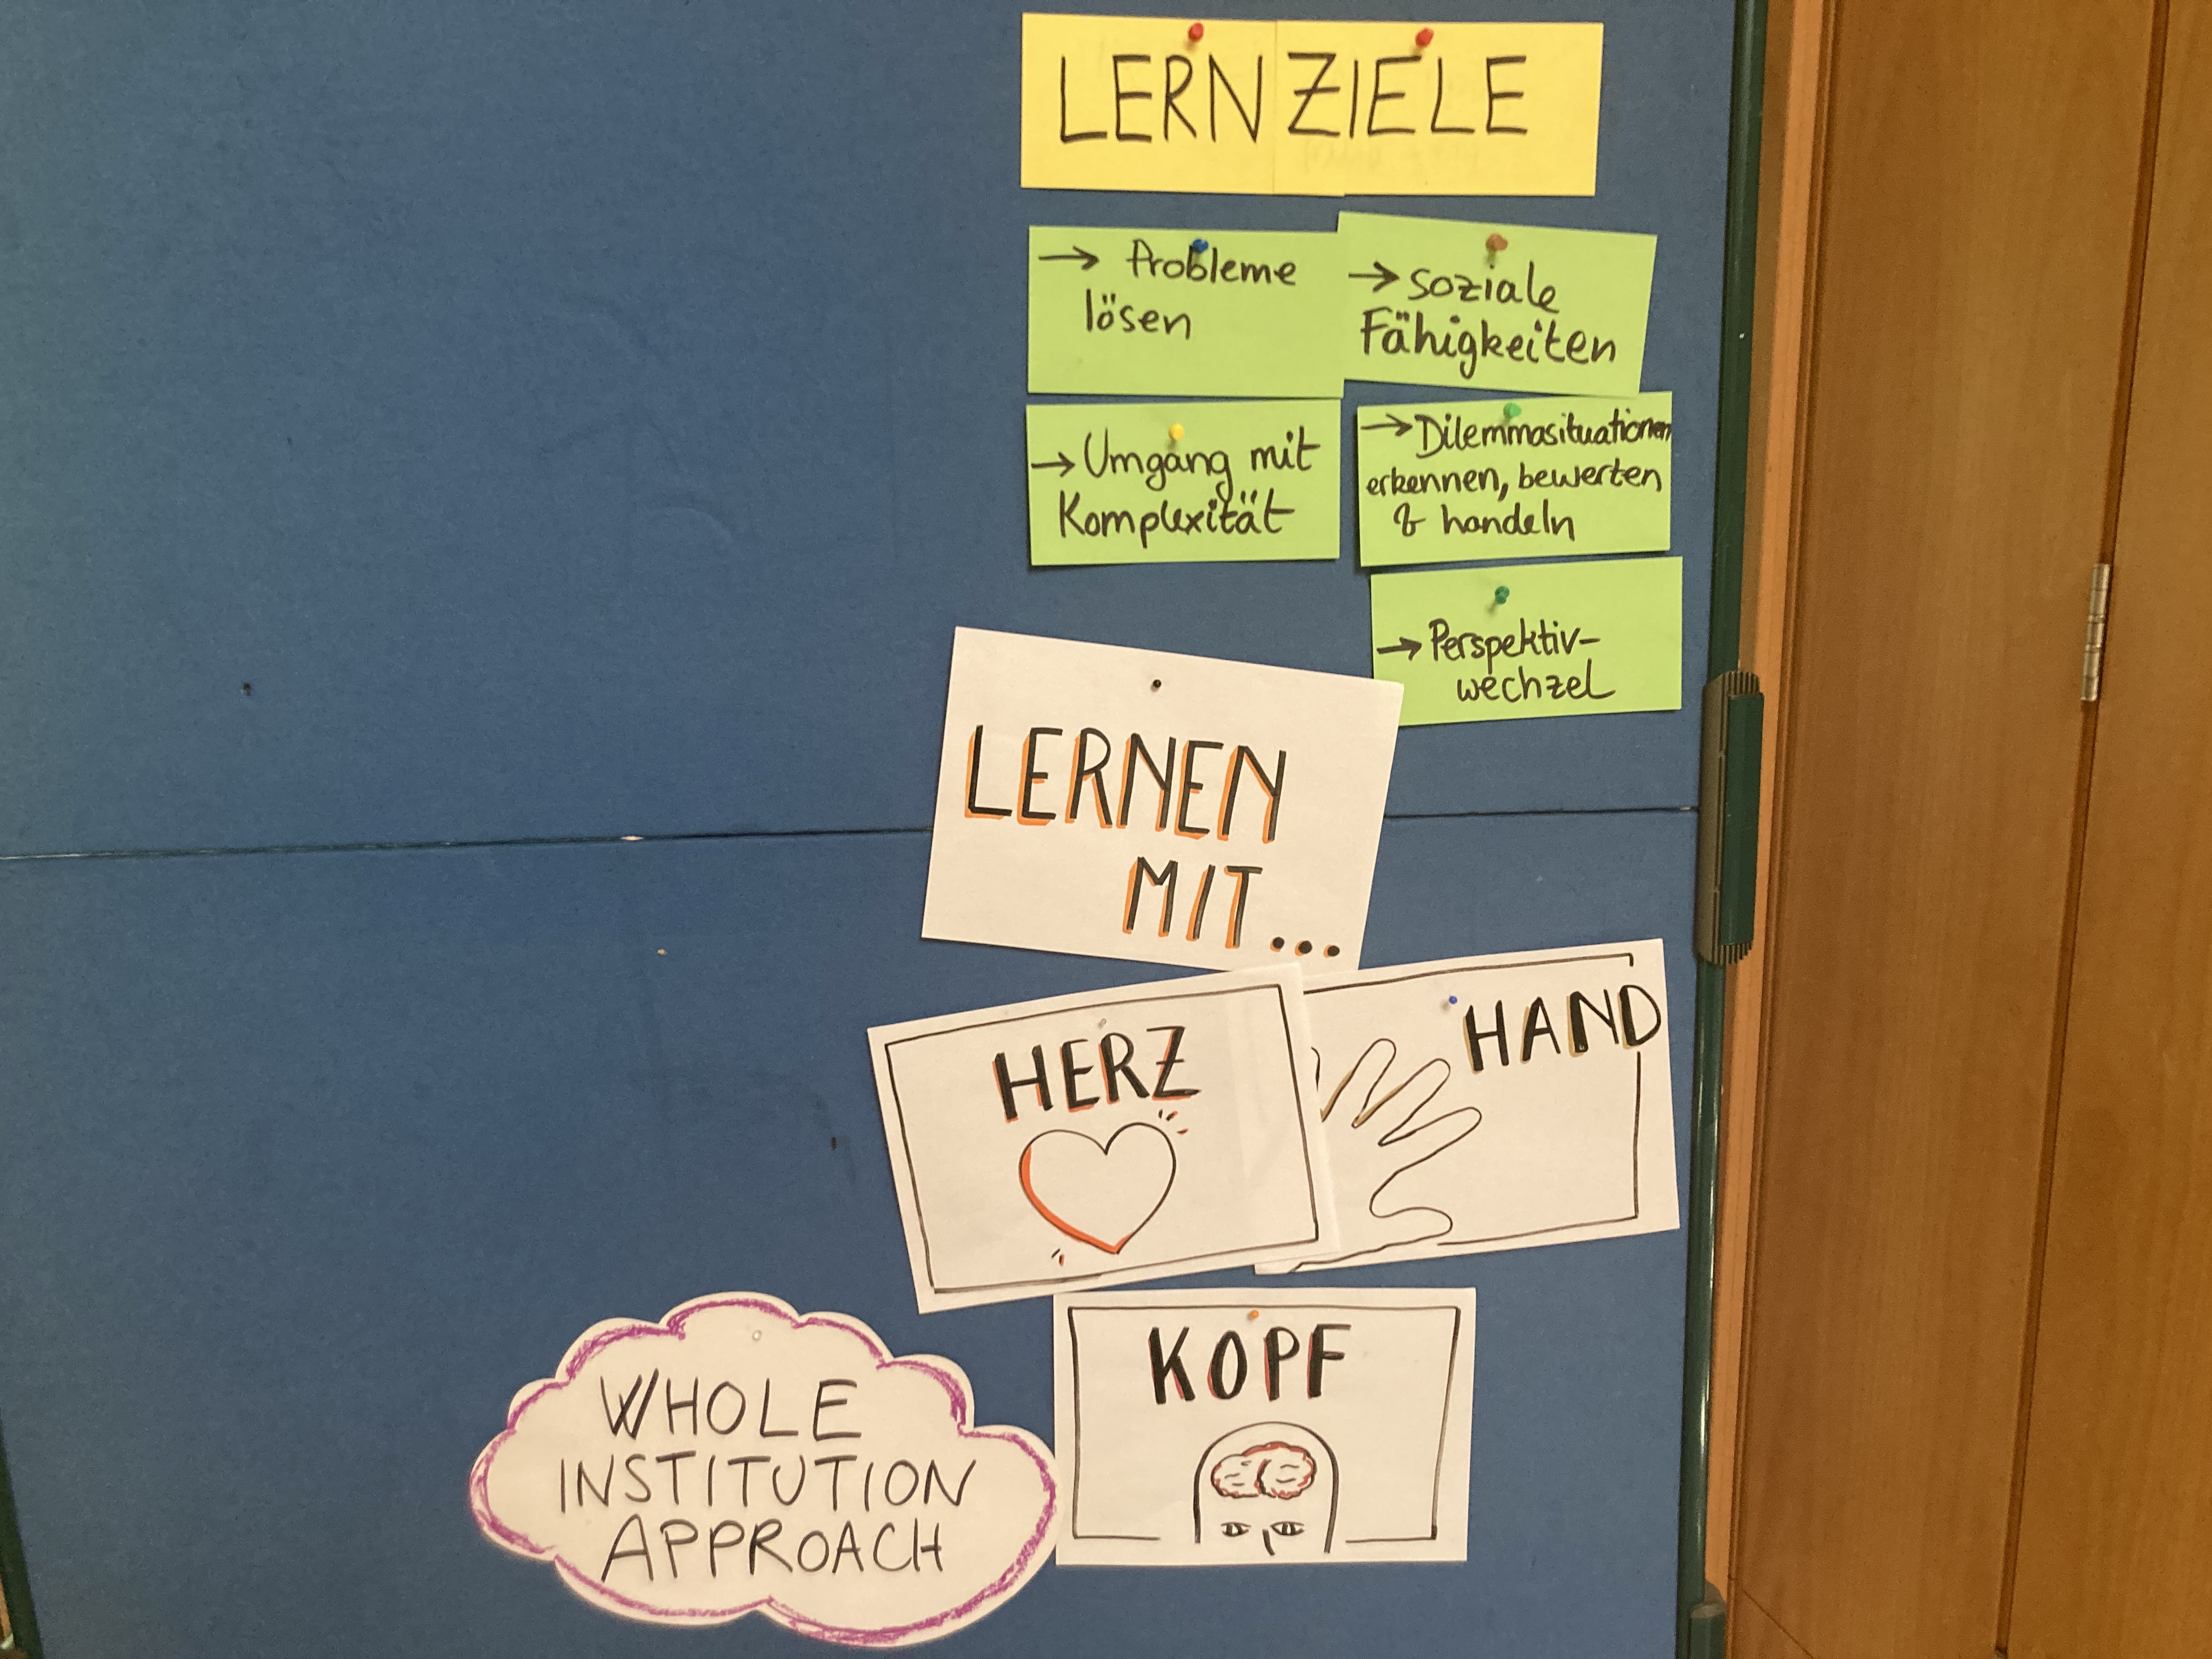 LERNZIELE
→ Probleme
lösen
→ soziale
Fähigkeiten
→ Umgang mit
Komplexität
→ Dilemmasituationen
erkennen, bewerten
& handeln
→ Perspektiv-
wechzel
LERNEN
MIT...
HERZ
HAND
KOPF
WHOLE
INSTITUTION
APPROACH